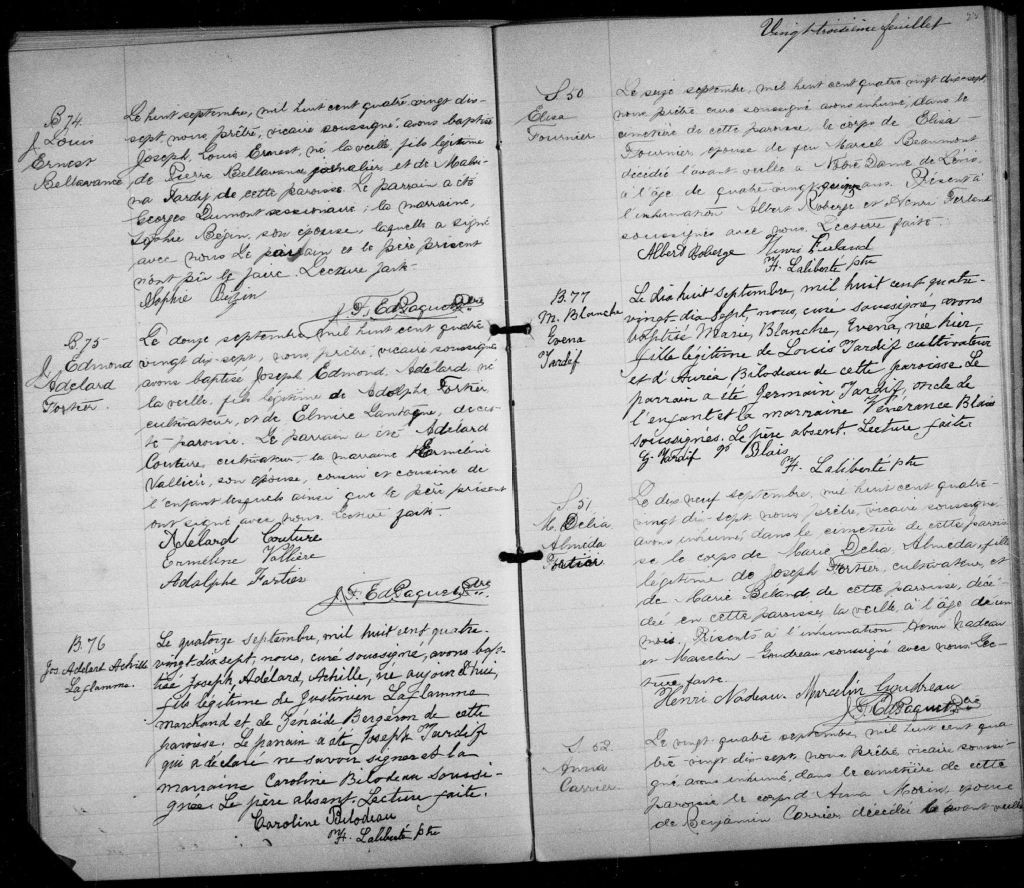 B 74.
J. Louis
Ernest
Bellavance
Le huit septembre, mil huit cent quatre-vingt dix-
sept nous, prêtre, vicaire soussigné, avons baptisé
Joseph, Louis Ernest, né la veille, fils légitime
de Pierre Bellavance journalier, et de Malvi-
na Tardif de cette paroisse. Le parrain a été
Georges Dumont ; la marraine,
Sophie Bégin, son épouse, laquelle a signé
avec nous. Le parrain et le père présent
n'ont pu le faire. Lecture faite.
Sophie Bégin
J. F. Ed Paquet Ptre
B 75
J. Edmond
Adélard
Fortier.
Le douze septembre, mil huit cent quatre
vingt dix-sept, nous, prêtre, vicaire soussigné
avons baptisé Joseph Edmond, Adélard, né
la veille, fils légitime de Adolphe Fortier
cultivateur, et de Elmire Gantagne, de cet-
te paroisse. Le parrain a été Adélard
Couture, cultivateur, la marraine Ermeline
Vallière, son épouse, cousin et cousine de
l'enfant lesquels ainsi que le père présent
ont signé avec nous. Lecture faite.
Adélard Couture
Ermeline Vallière
Adolphe Fortier
J. F. Ed Paquet Ptre
B. 76
Jos. Adélard Achille
Laflamme.
Le quatorze septembre, mil huit cent quatre-
vingt dix sept, nous, curé soussigné, avons bap-
tisé Joseph, Adélard, Achille, né aujourd'hui,
fils légitime de Justinien Laflamme
marchand et de Zénaïde Bergeron de cette
paroisse. Le parrain a été Joseph Tardif
qui a déclaré ne savoir signer et la
marraine Caroline Bilodeau soussi-
gnée. Le père absent. Lecture faite.
Caroline Bilodeau
H. Laliberté ptre
Vingt-troisième feuillet
S. 50
Elisa
Fournier.
Le seize septembre, mil huit cent quatre vingt dix-sept,
nous prêtre curé soussigné avons inhumé, dans le
cimetière de cette paroisse, le corps de Elisa
Fournier, épouse de feu Marcel Beaumont
décédée l'avant veille à Notre Dame de Lévis
à l'âge de quatre-vingt ans. Présent à
l'inhumation Albert Roberge et Henri Ferland
soussignés avec nous. Lecture faite.
Albert Roberge Henri Ferland
H. Laliberté ptre
B. 77
M. Blanche
Evena
Tardif
Le dix huit septembre, mil huit cent quatre-
vingt-dix-sept, nous, curé soussigné, avons
baptisé Marie, Blanche, Evena, née hier,
fille légitime de Louis Tardif cultivateur
et d'Auréa Bilodeau de cette paroisse. Le
parrain a été Germain Tardif, oncle de
l'enfant et la marraine Vénérance Blais
soussignés. Le père absent. Lecture faite.
G. Tardif Blais
H. Laliberté ptre
S. 51
M. Delia,
Almeda
Fortier
Le dix neuf septembre, mil huit cent quatre-
vingt-dix-sept nous, prêtre, vicaire soussigné
avons inhumé, dans le cimetière de cette parois-
se le corps de Marie, Delia, Almeda, fille
légitime de Joseph Fortier, cultivateur, et
de Marie Béland de cette paroisse, décé-
dée en cette paroisse, la veille, à l'âge de un
mois. Présents à l'inhumation Henri Nadeau
et Marcelin Goudreau soussigné avec nous. Lec-
ture faite.
Henri Nadeau Marcelin Goudreau
J. F. Ed Paquet Ptre
S. 52.
Anna
Carrier.
Le vingt-quatre septembre, mil huit cent qua-
tre vingt dix-sept, nous, prêtre, vicaire soussi-
gné avons inhumé, dans le cimetière de cette
paroisse, le corps d'Anna Morin, épouse
de Benjamin Carrier décédée l'avant veille